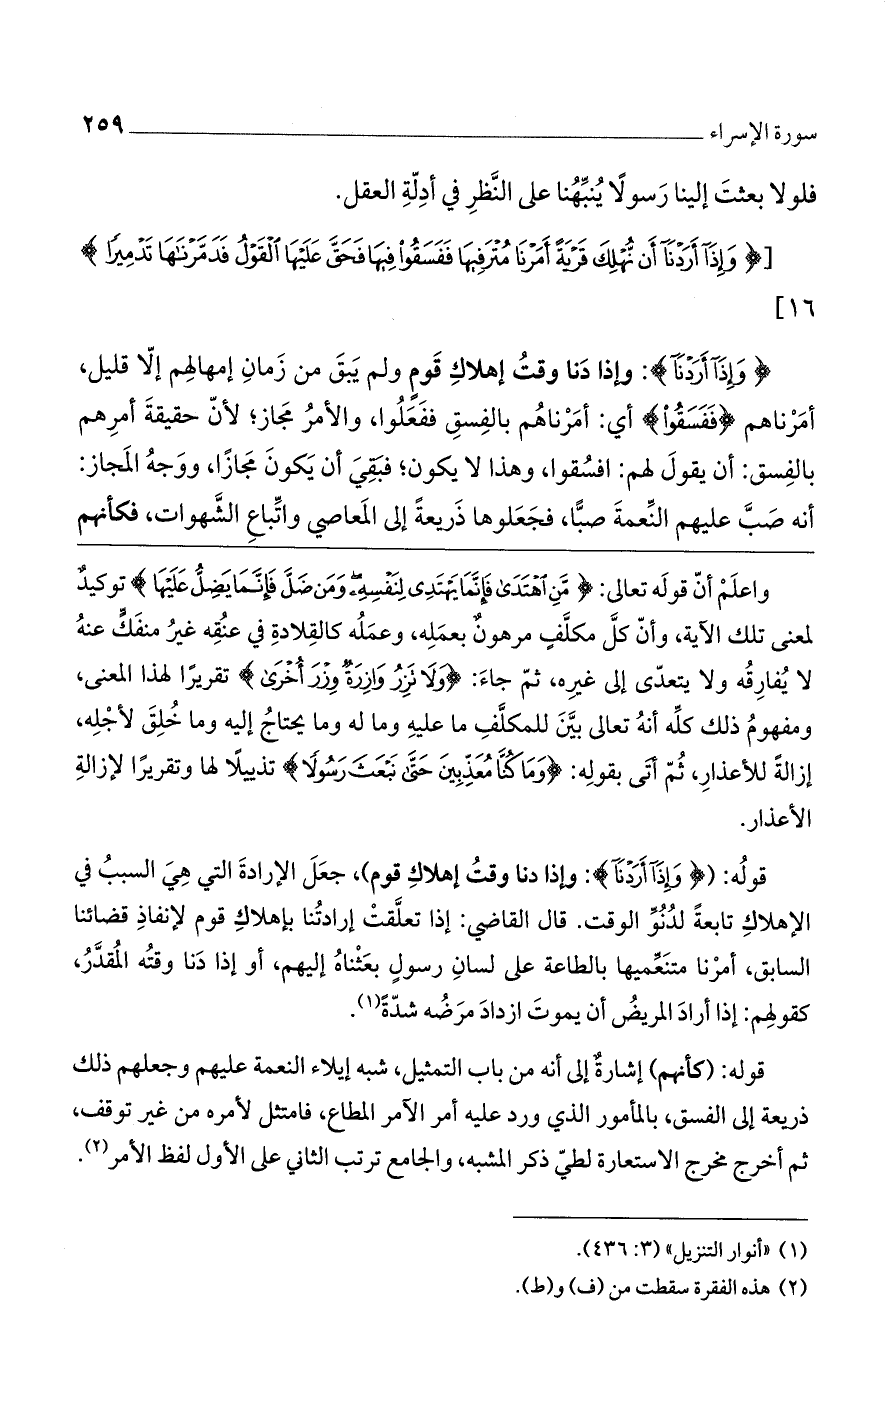 سورة الإسراء ٢٥٩
فلولا بعثتَ إلينا رَسولًا يُنبِّهُنا على النَّظرِ في أدِلّةِ العقل.
[﴿ وَإِذَآ أَرَدْنَآ أَن نُّهْلِكَ قَرْيَةً أَمَرْنَا مُتْرَفِيهَا فَفَسَقُوا۟ فِيهَا فَحَقَّ عَلَيْهَا ٱلْقَوْلُ فَدَمَّرْنَٰهَا تَدْمِيرًا ﴾
١٦]
﴿ وَإِذَآ أَرَدْنَآ ﴾: وإذا دَنا وقتُ إهلاكِ قَومٍ ولم يَبقَ من زَمانِ إمهالِهم إلّا قليل،
أمَرْناهم ﴿فَفَسَقُوا۟﴾ أي: أمَرْناهُم بالفِسقِ ففَعَلُوا، والأمرُ مَجاز؛ لأنّ حقيقةَ أمرِهم
بالفِسق: أن يقولَ لهم: افسُقوا، وهذا لا يكون؛ فبَقِيَ أن يَكونَ مَجازًا، ووَجهُ المَجاز:
أنه صَبَّ عليهم النِّعمةَ صبًّا، فجَعَلوها ذَريعةً إلى المَعاصي واتِّباعِ الشَّهوات، فكأنهم
واعلَمْ أنّ قولَه تعالى: ﴿ مَّنِ ٱهْتَدَىٰ فَإِنَّمَا يَهْتَدِى لِنَفْسِهِۦ ۖ وَمَن ضَلَّ فَإِنَّمَا يَضِلُّ عَلَيْهَا ﴾ توكيدٌ
لمعنى تلك الآية، وأنّ كلَّ مكلَّفٍ مرهونٌ بعمَلِه، وعمَلُه كالقِلادةِ في عنُقِه غيرُ منفَكٍّ عنهُ
لا يُفارِقُه ولا يتعدّى إلى غيرِه، ثمّ جاءَ: ﴿وَلَا تَزِرُ وَازِرَةٌ وِزْرَ أُخْرَىٰ﴾ تقريرًا لهذا المعنى،
ومفهومُ ذلك كلِّه أنهُ تعالى بيَّنَ للمكلَّفِ ما عليهِ وما له وما يحتاجُ إليه وما خُلِقَ لأجْلِه،
إزالةً للأعذارِ، ثُمّ أتَى بقولِه: ﴿وَمَا كُنَّا مُعَذِّبِينَ حَتَّىٰ نَبْعَثَ رَسُولًا﴾ تذييلًا لها وتقريرًا لإزالةِ
الأعذار.
قولُه: (﴿ وَإِذَآ أَرَدْنَآ ﴾: وإذا دنا وقتُ إهلاكِ قوم)، جعَلَ الإرادةَ التي هِيَ السببُ في
الإهلاكِ تابعةً لدُنُوِّ الوقت. قال القاضي: إذا تعلَّقتْ إرادتُنا بإهلاكِ قوم لإنفاذِ قضائنا
السابق، أمرْنا متنَعِّميها بالطاعة على لسانِ رسولٍ بعَثْناهُ إليهم، أو إذا دَنا وقتُه المُقدَّرُ،
كقولهِم: إذا أرادَ المريضُ أن يموتَ ازدادَ مرَضُه شدّةً(١).
قوله: (كأنهم) إشارةٌ إلى أنه من باب التمثيل، شبه إيلاء النعمة عليهم وجعلهم ذلك
ذريعة إلى الفسق، بالمأمور الذي ورد عليه أمر الآمر المطاع، فامتثل لأمره من غير توقف،
ثم أخرج مخرج الاستعارة لطيّ ذكر المشبه، والجامع ترتب الثاني على الأول لفظ الأمر(٢).
(١) «أنوار التنزيل» (٣: ٤٣٦).
(٢) هذه الفقرة سقطت من (ف) و(ط).